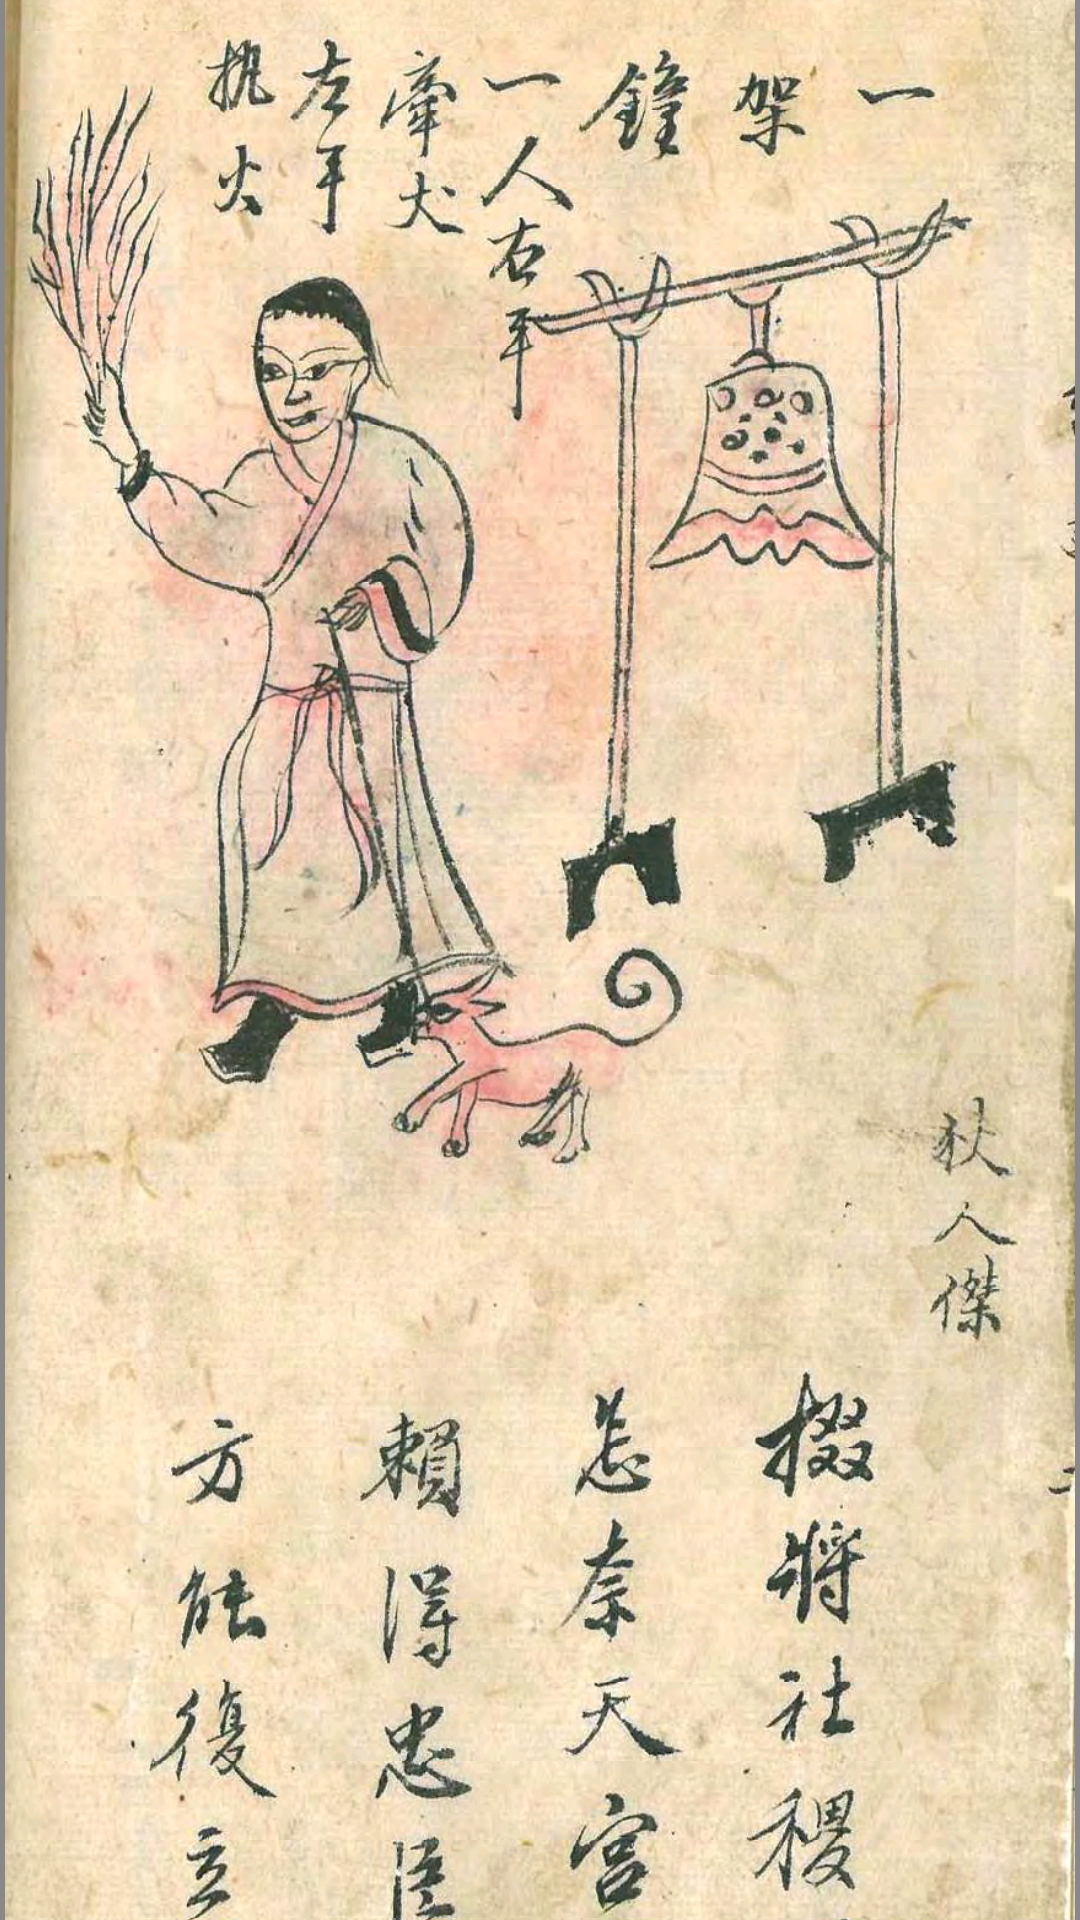 一
架
鐘
一人右手
牽犬
左手
執火
狄人傑
掇將社稷
怎奈天宮
賴得忠臣
方能復立